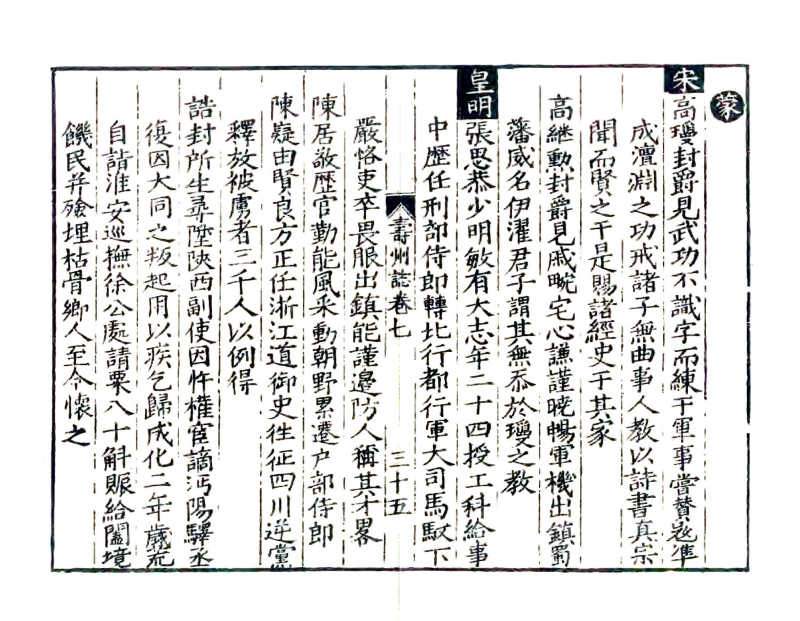 蒙
宋高瓊封爵見武功不識字而練于軍事嘗贊寇準
成澶淵之功戒諸子無曲事人教以詩書真宗
聞而賢之于是賜諸經史于其家
高継勲封爵見戚畹宅心謙謹曉暢軍機出鎮蜀
藩威名伊濯君子謂其無忝於瓊之教
皇明張思恭少明敏有大志年二十四授工科給事
中歷任刑部侍郎轉北行都行軍大司馬馭下
壽州誌卷七 三十五
嚴恪吏卒畏服出鎮能謹邉防人稱其才畧
陳居敬歷官勤能風采動朝野累遷户部侍郎
陳嶷由賢良方正任浙江道御史徃征四川逆黨
釋放被虜者三千人以例得
誥封所生尋陞陜西副使因忤權宦謫沔陽驛丞
復因大同之叛起用以疾乞歸成化二年歲荒
自詣淮安巡撫徐公處請粟八十斛賑給闔境
饑民并殮埋枯骨鄉人至今懷之